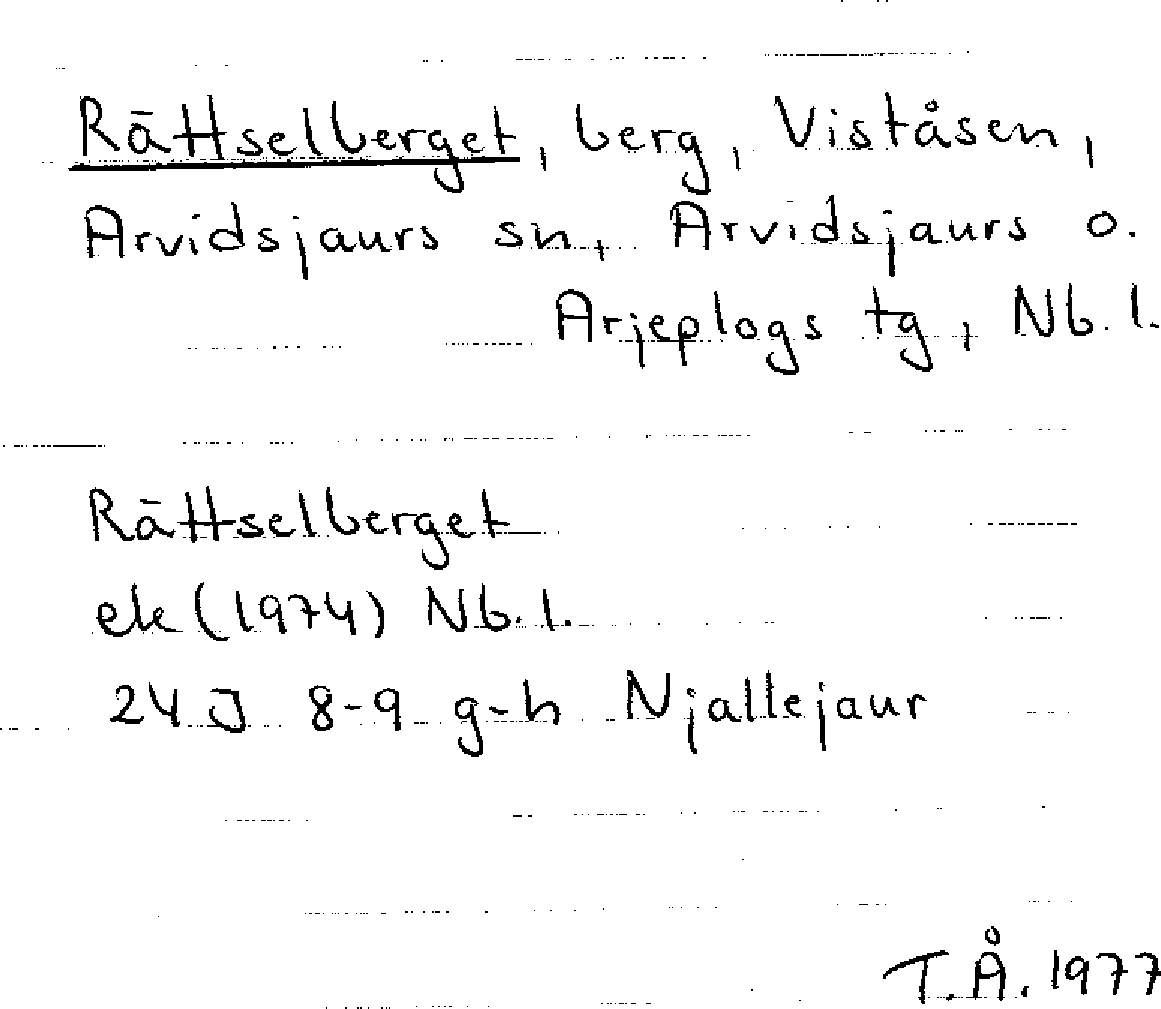 Rättselberget, berg, Viståsen,
Arvidsjaurs sn, Arvidsjaurs o.
Arjeplogs tg, Nb. l.
Rättselberget
ek (1974) Nb. l.
24 J 8-9 g-h Njallejaur
T.Å. 1977